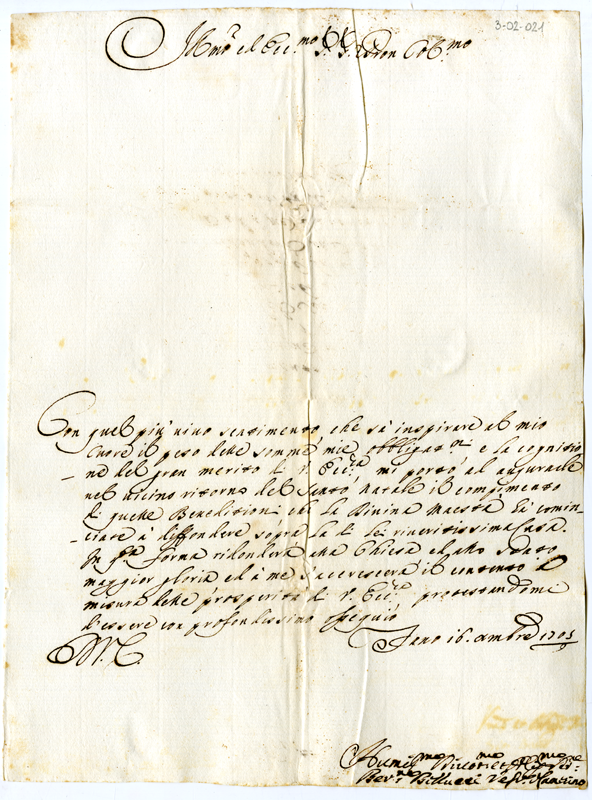 3-02-021
Ill.mo ed Ecc.mo Sig. Padron Col.mo
Con quel più vivo sentimento, che sà inspirare al mio
Cuore il peso delle somme mie obbligat.ni e la cognitio-
ne del gran merito di V. Ecc.za mi porto ad augurarle
nel vicino ritorno del Santo Natale il compimento
di quelle Beneditioni che la Divina Maestà hà comin-
ciate à diffondere sopra la di Lei riveritissima Casa.
In q.ta forma ridonderà alla Chiesa ed allo Stato
maggior gloria ed à me s'accrescerà il contento à
misura delle prosperità di V. Ecc.za protestandomi
d'essere con profondissimo ossequio
Fano 16. Xmbre 1705
D. V. E.
Humil.mo Devot.mo
Ber.no Bellucci